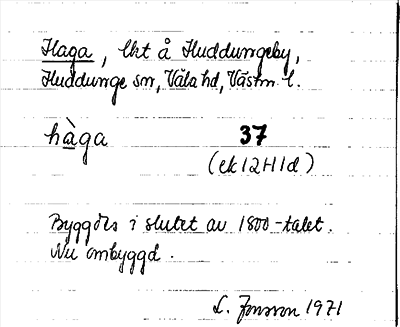 Haga, lkt å Huddungeby,
Huddunge sn, Våla hd, Västm. l.
hàga 37
(ek 12H1d)
Byggdes i slutet av 1800-talet.
Nu ombyggd.
L. Jonsson 1971